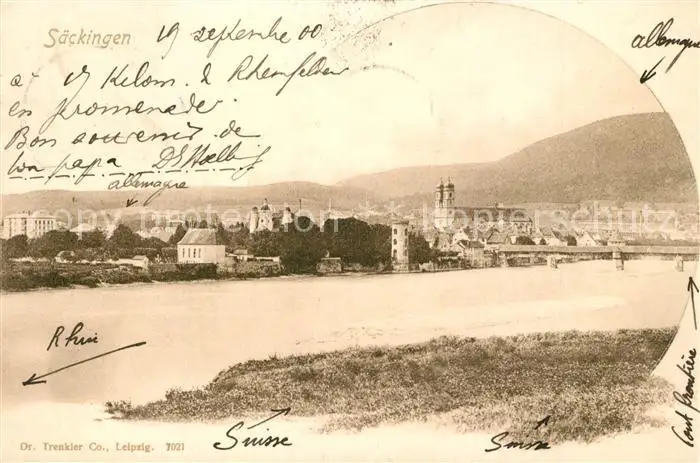 Säckingen
19 septembre 00
allemagne
à 17 Kilom. d Rhenfelden
en promenade.
Bon souvenir de
ton papa
allemagne
copy protection
kopierschutz
Rhin
Pont frontière
Suisse
Suisse
Dr. Trenkler Co., Leipzig. 7021